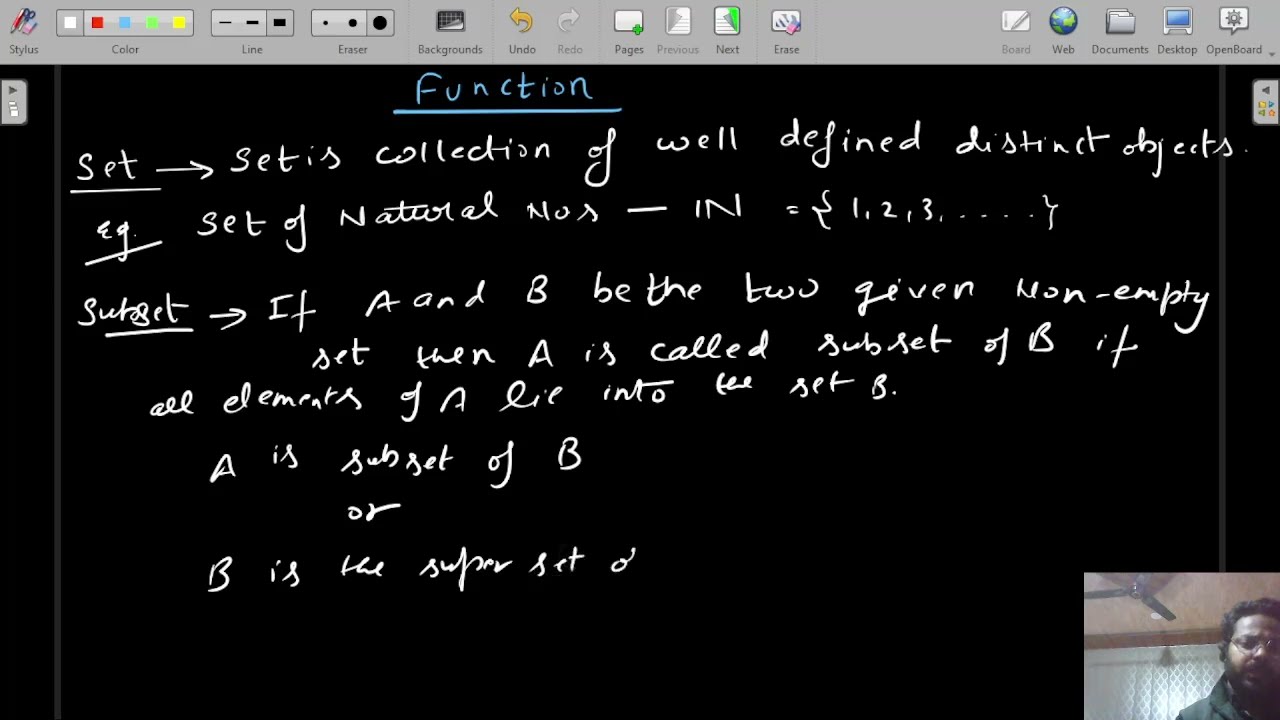 Stylus Color Line Eraser Backgrounds Undo Redo Pages Previous Next Erase Board Web Documents Desktop OpenBoard
Function
Set → Set is collection of well defined distinct objects.
eg. Set of Natural Nos — IN = {1, 2, 3, .....}
Subset → If A and B be the two given Non-empty
set then A is called subset of B if
all elements of A lie into the set B.
A is subset of B
or
B is the super set o